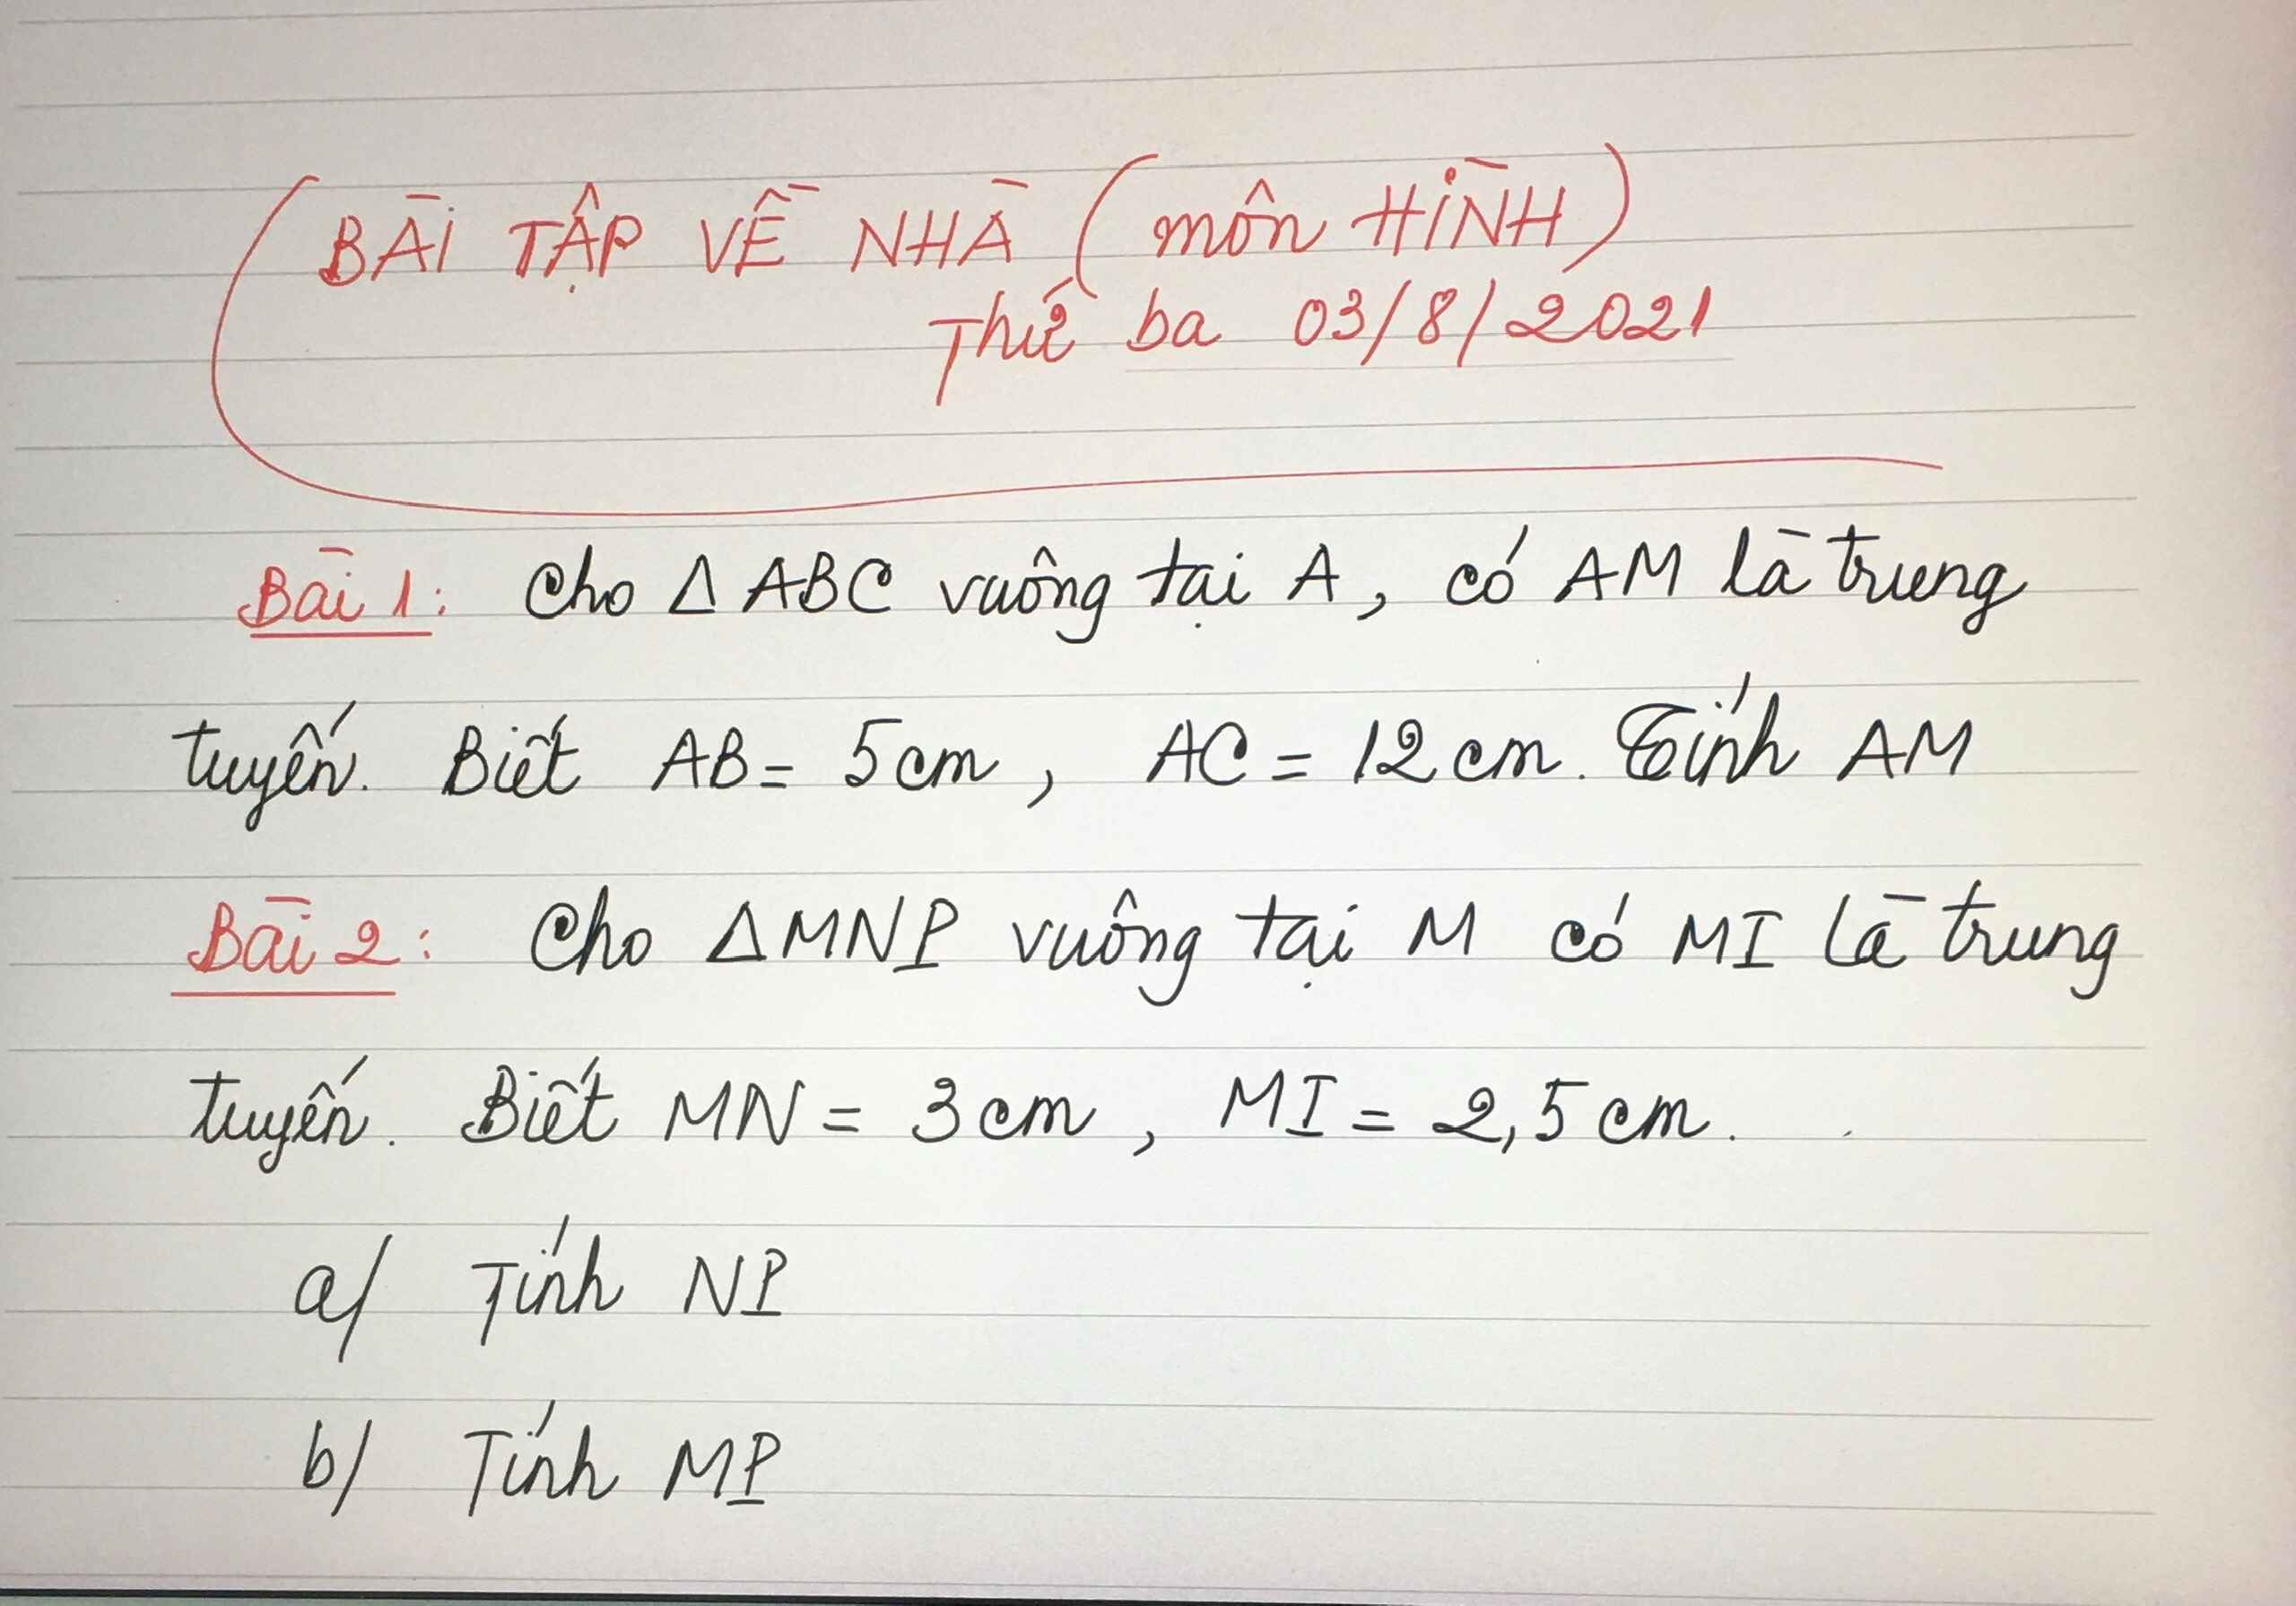 BÀI TẬP VỀ NHÀ (môn HÌNH)
Thứ ba 03/8/2021
Bài 1: Cho Δ ABC vuông tại A, có AM là trung
tuyến. Biết AB = 5cm, AC = 12cm. Tính AM
Bài 2: Cho ΔMNP vuông tại M có MI là trung
tuyến. Biết MN = 3cm, MI = 2,5cm.
a/ Tính NP
b/ Tính MP